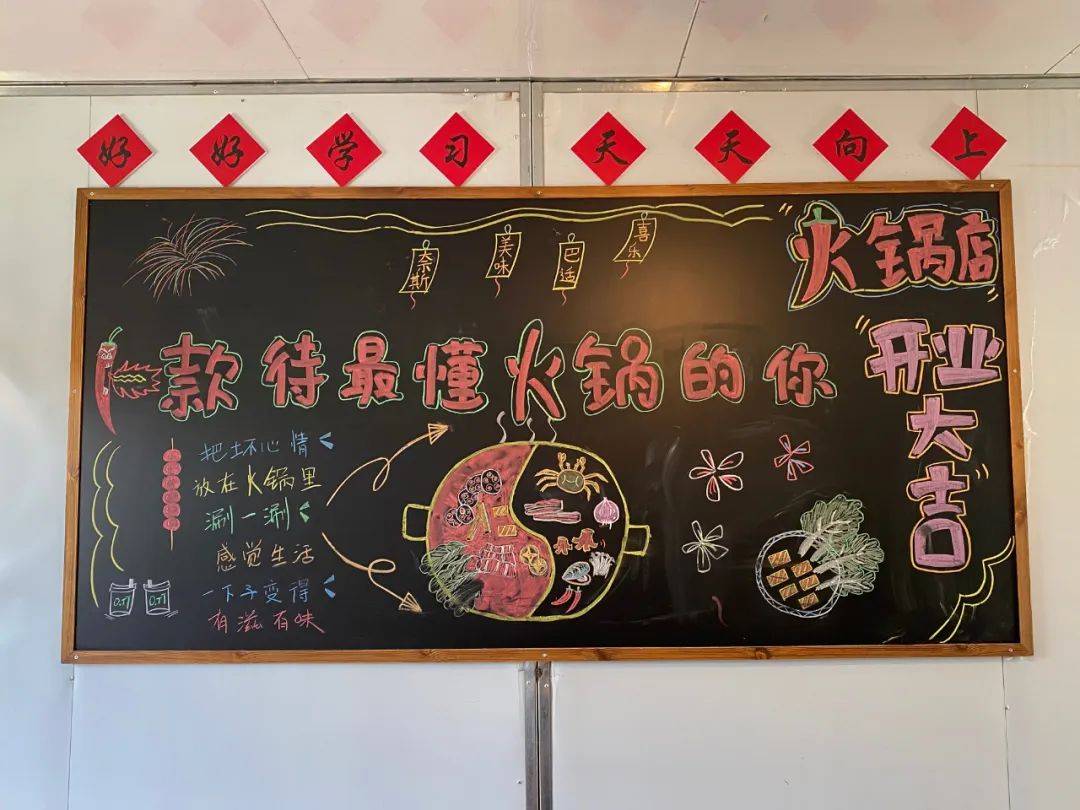 好好学习天天向上
奈斯
美味
巴适
喜乐
火锅店
款待最懂火锅的你
开业
大吉
把坏心情
放在火锅里
涮一涮
感觉生活
一下子变得
有滋有味